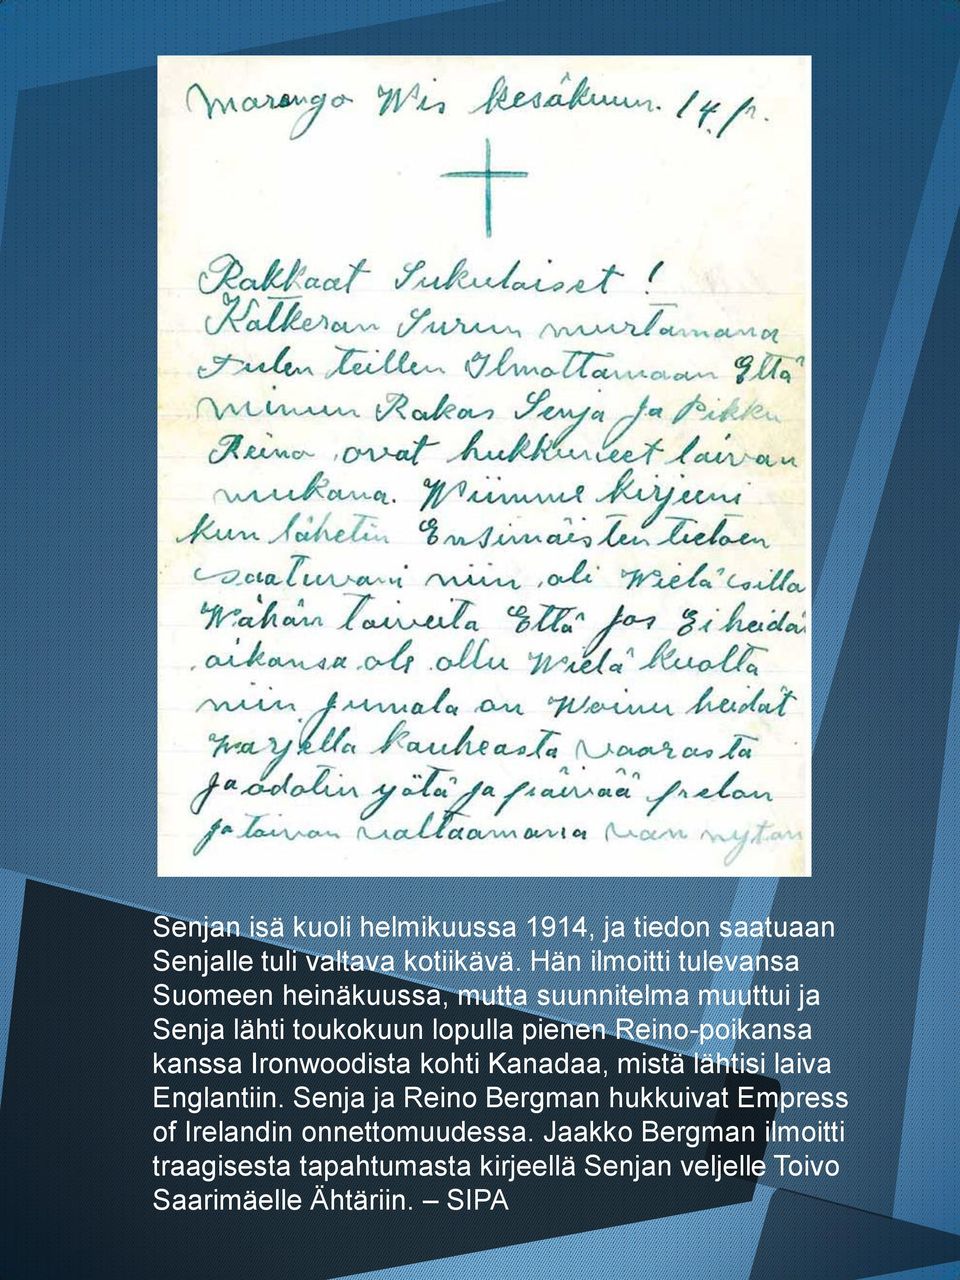 Marengo Wis Kesäkuun. 14. p.
Rakkaat Sukulaiset!
Katkeran Surun murtamana
tulen teillen Ilmottamaan Että
minun Rakas Senja Ja Pikku
Reino ovat hukkuneet laivan
mukana. Wiimme kirjeeni
kun lähetin Ensimäisten tietoen
saatuvani niin oli Wielä silla
Wähän toiveita Että Jos Ei heidä
aikansa ole ollu Wielä kuolta
niin Jumala on Woinu heidät
Warjella kauheasta vaarasta
Ja odotin yötä Ja päivää pelon
ja toivon valtaamana van nyton
Senjan isä kuoli helmikuussa 1914, ja tiedon saatuaan
Senjalle tuli valtava kotiikävä. Hän ilmoitti tulevansa
Suomeen heinäkuussa, mutta suunnitelma muuttui ja
Senja lähti toukokuun lopulla pienen Reino-poikansa
kanssa Ironwoodista kohti Kanadaa, mistä lähtisi laiva
Englantiin. Senja ja Reino Bergman hukkuivat Empress
of Irelandin onnettomuudessa. Jaakko Bergman ilmoitti
traagisesta tapahtumasta kirjeellä Senjan veljelle Toivo
Saarimäelle Ähtäriin. – SIPA